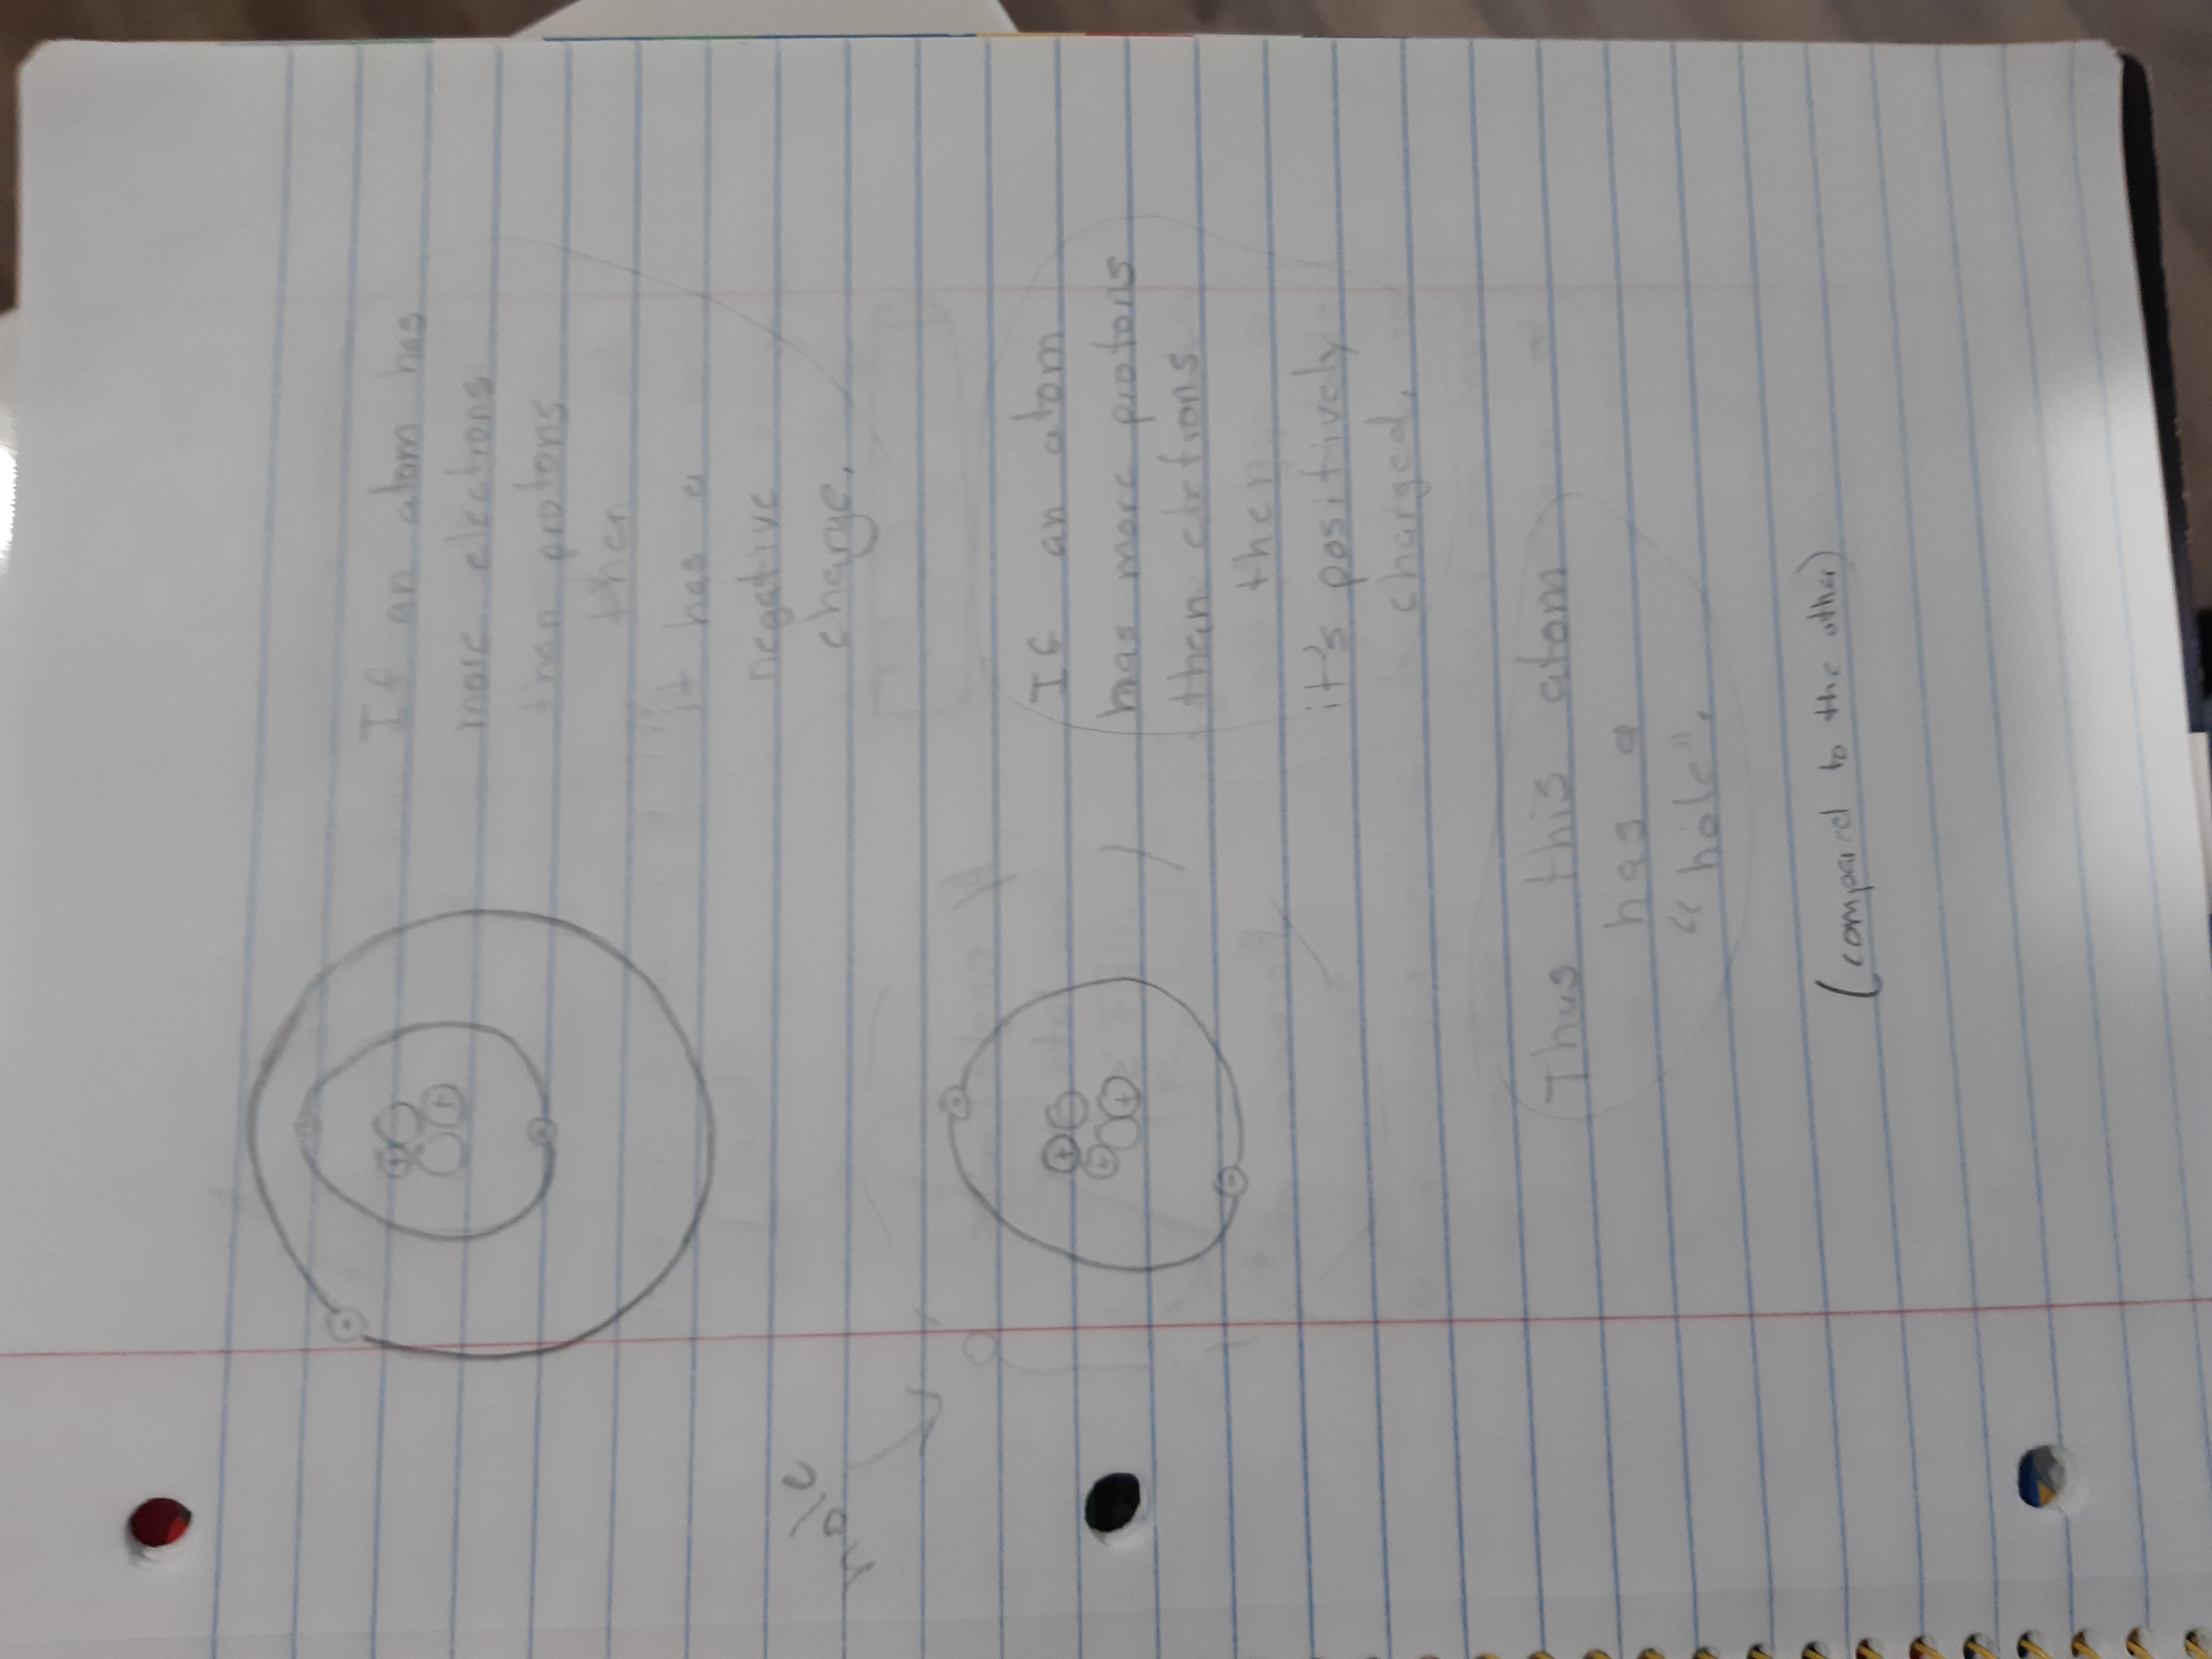 If an atom has
more electrons
than protons
then
it has a
negative
charge.
hole
If an atom
has more protons
than eletrons
then
it's positively
charged.
Thus this atom
has a
"hole".
(compared to the other)